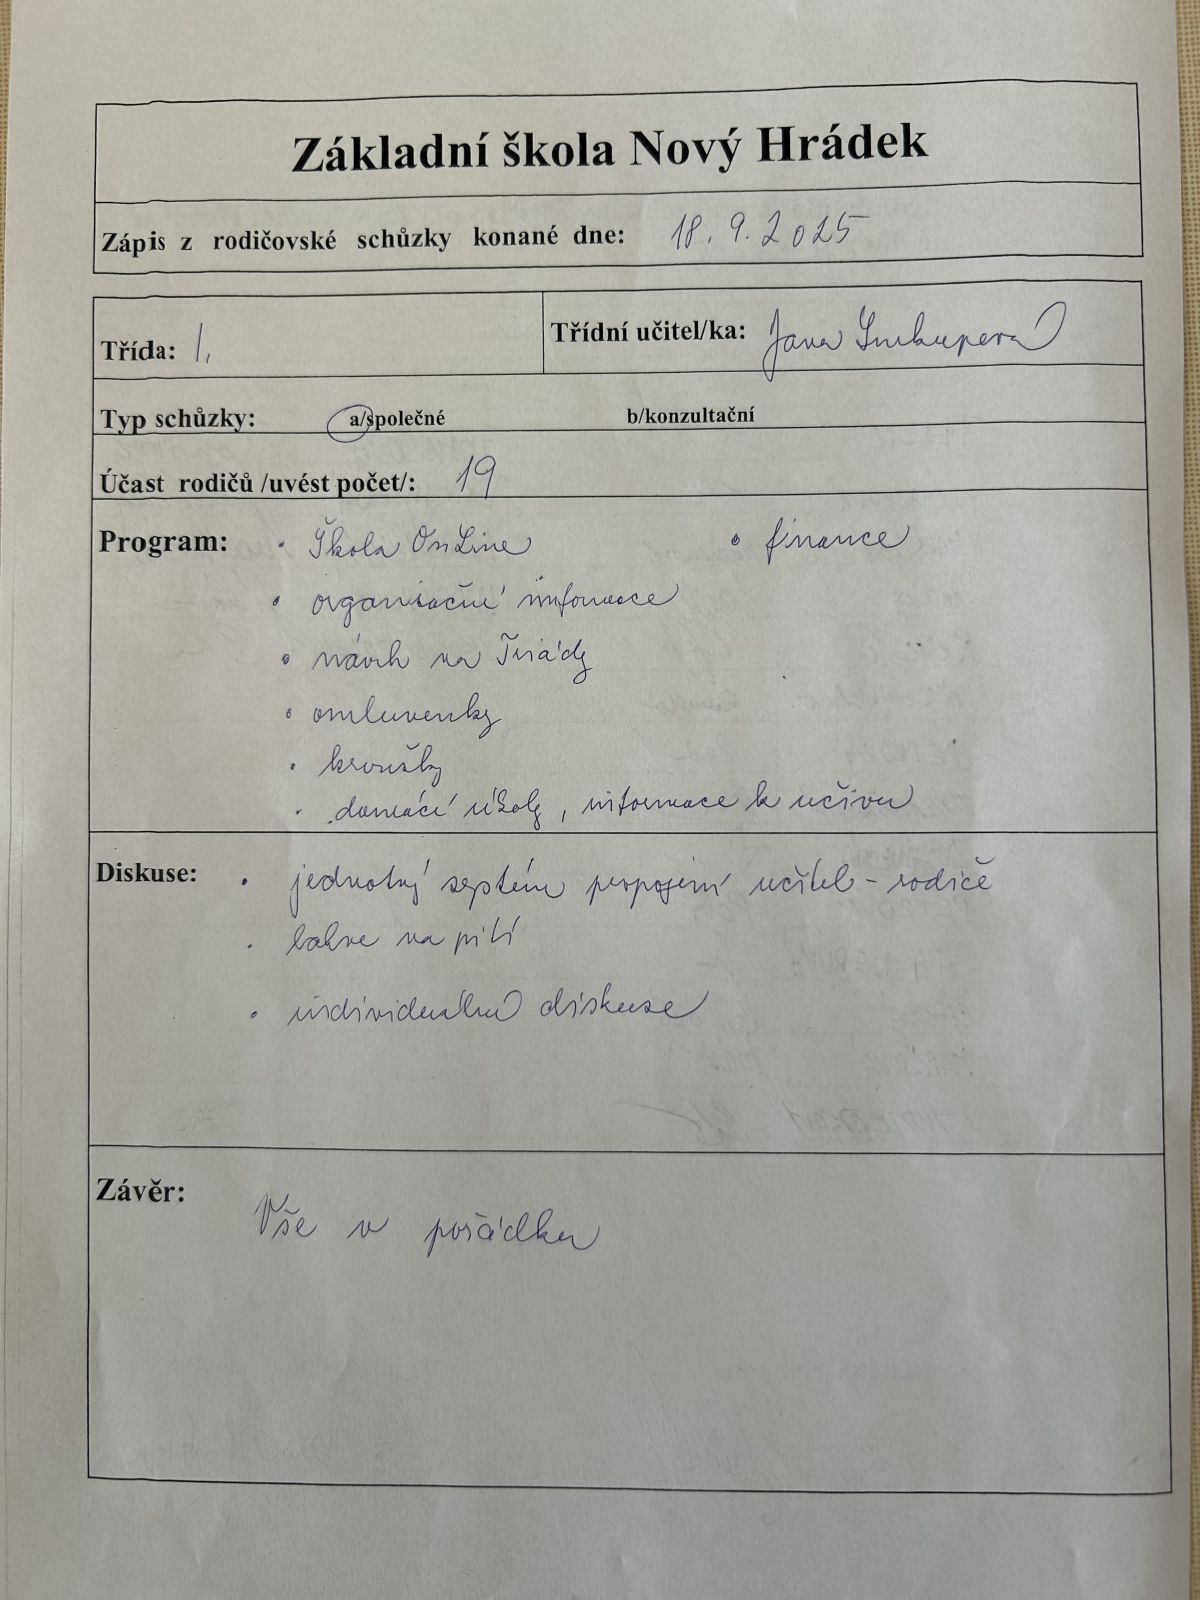 Základní škola Nový Hrádek
Zápis z rodičovské schůzky konané dne: 18. 9. 2025
Třída: 1.
Třídní učitel/ka: Jana
Typ schůzky: a/společné b/konzultační
Účast rodičů /uvést počet/: 19
Program: • Škola OnLine • finance
• organizační informace
• návrh na
• omluvenky
• kroužky
• domácí úkoly, informace k učivu
Diskuse: • jednotný systém propojení učitel – rodiče
• lahve na pití
• individuální diskuse
Závěr:
Vše v pořádku